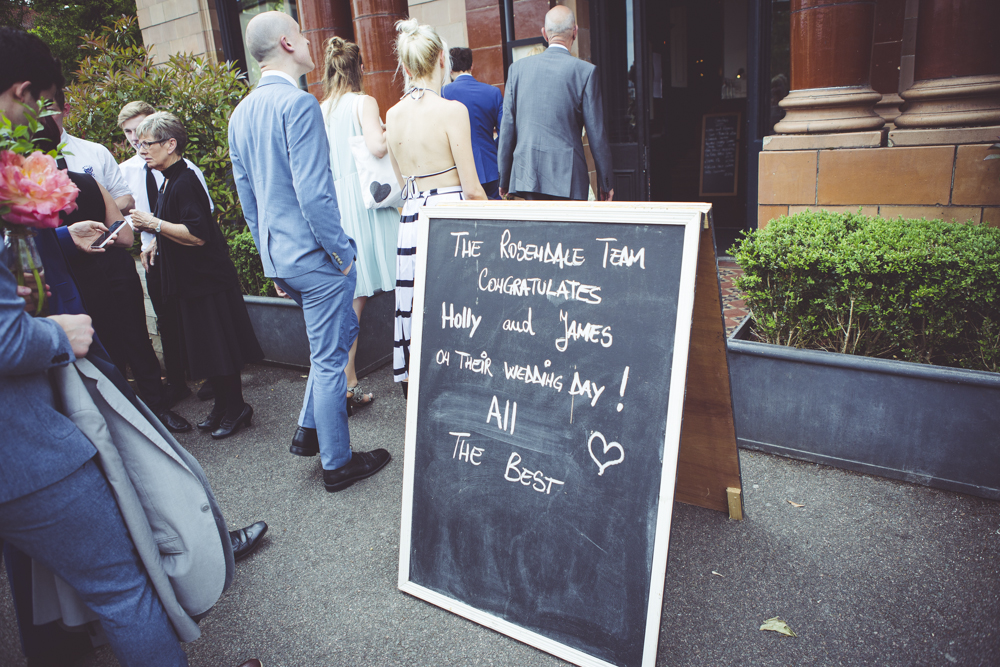 The Rosendale Team
Congratulates
Holly and James
on their wedding day!
All
The Best